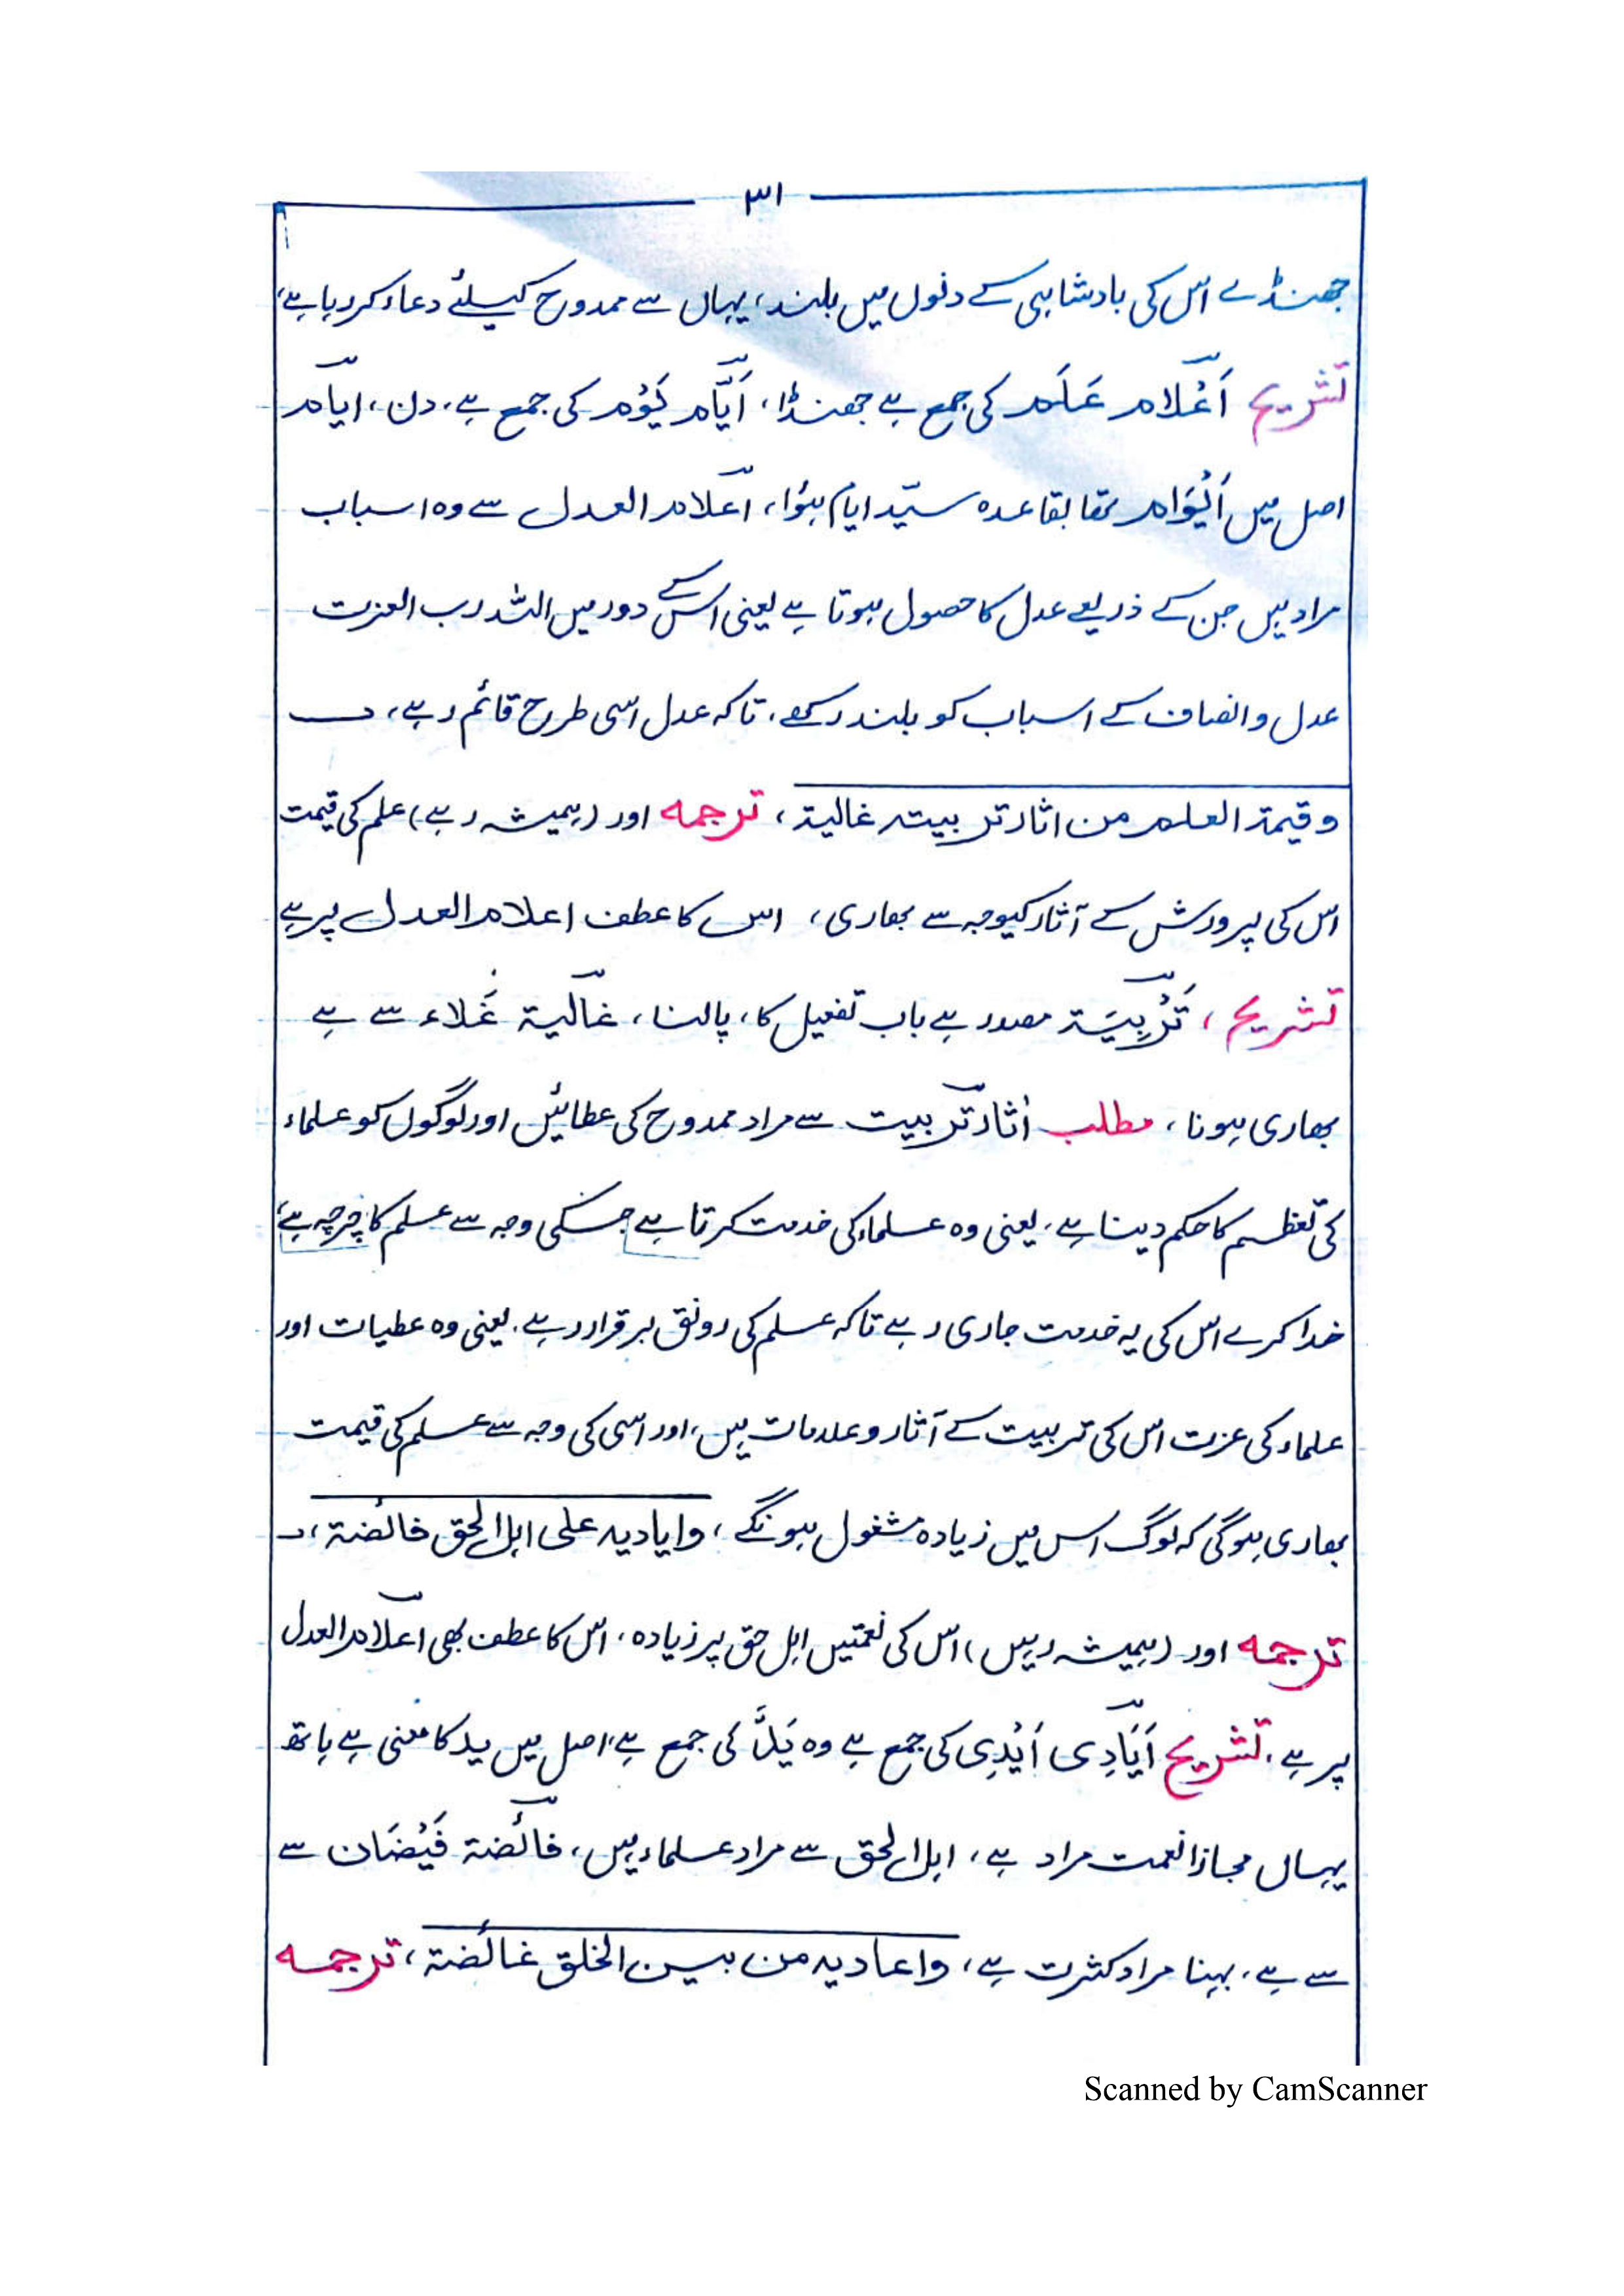 ۳۱
جھنڈے اس کی بادشاہی کے دنوں میں بلند، یہاں سے ممدوح کیلئے دعاء کر رہا ہے،
تشریح أَعْلام عَلَم کی جمع ہے جھنڈا، أَيَّام يَوْم کی جمع ہے، دن، ایام
اصل میں أَيْوَام تھا بقاعدہ سیّد ایام ہؤا، اعلام العدل سے وہ اسباب
مراد ہیں جن کے ذریعے عدل کا حصول ہوتا ہے یعنی اس کے دور میں اللہ رب العزت
عدل وانصاف کے اسباب کو بلند رکھے، تاکہ عدل اسی طرح قائم رہے،
وقيمة العلم من اثار تربيته غالية، ترجمه اور (ہمیشہ رہے) علم کی قیمت
اس کی پرورش کے آثار کیوجہ سے بھاری، اس کا عطف اعلام العدل پر ہے
تشریح، تَرْبِيَة مصدر ہے باب تفعیل کا، پالنا، غالية غَلاء سے ہے
بھاری ہونا، مطلب أثار تربیت سے مراد ممدوح کی عطائیں اور لوگوں کو علماء
کی تعظیم کا حکم دینا ہے، یعنی وہ علماء کی خدمت کرتا ہے جسکی وجہ سے علم کا چرچہ ہے،
خدا کرے اس کی یہ خدمت جاری رہے تاکہ علم کی رونق برقرار رہے، یعنی وہ عطیات اور
علماء کی عزت اس کی تربیت کے آثار وعلامات ہیں، اور اسی کی وجہ سے علم کی قیمت
بھاری ہوگی کہ لوگ اس میں زیادہ مشغول ہونگے، وایادیه علی اہل الحق فائضة،
ترجمه اور (ہمیشہ رہیں) اس کی نعمتیں اہل حق پر زیادہ، اس کا عطف بھی اعلام العدل
پر ہے، تشریح أَيَادِی أَيْدِی کی جمع ہے وہ يَدٌ کی جمع ہے، اصل میں ید کا معنی ہے ہاتھ
یہاں مجازا نعمت مراد ہے، اہل الحق سے مراد علماء ہیں، فائضة فَيْضَان سے
سے ہے، بہنا مراد کثرت ہے، واعادیه من بین الخلق غائضة، ترجمه
Scanned by CamScanner